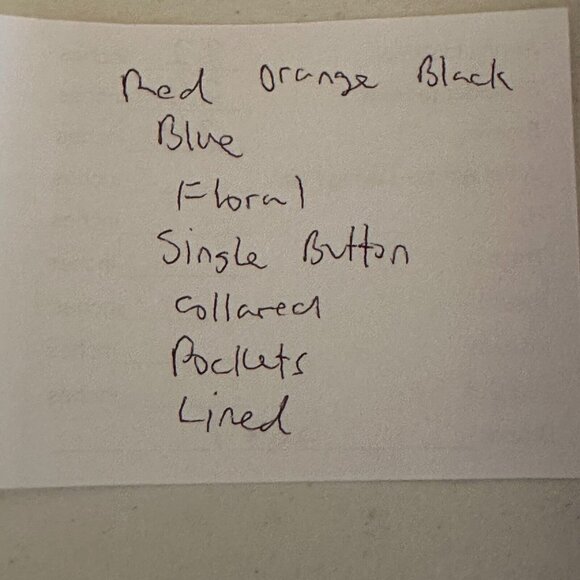 Red Orange Black
Blue
Floral
Single Button
Collared
Pockets
Lined